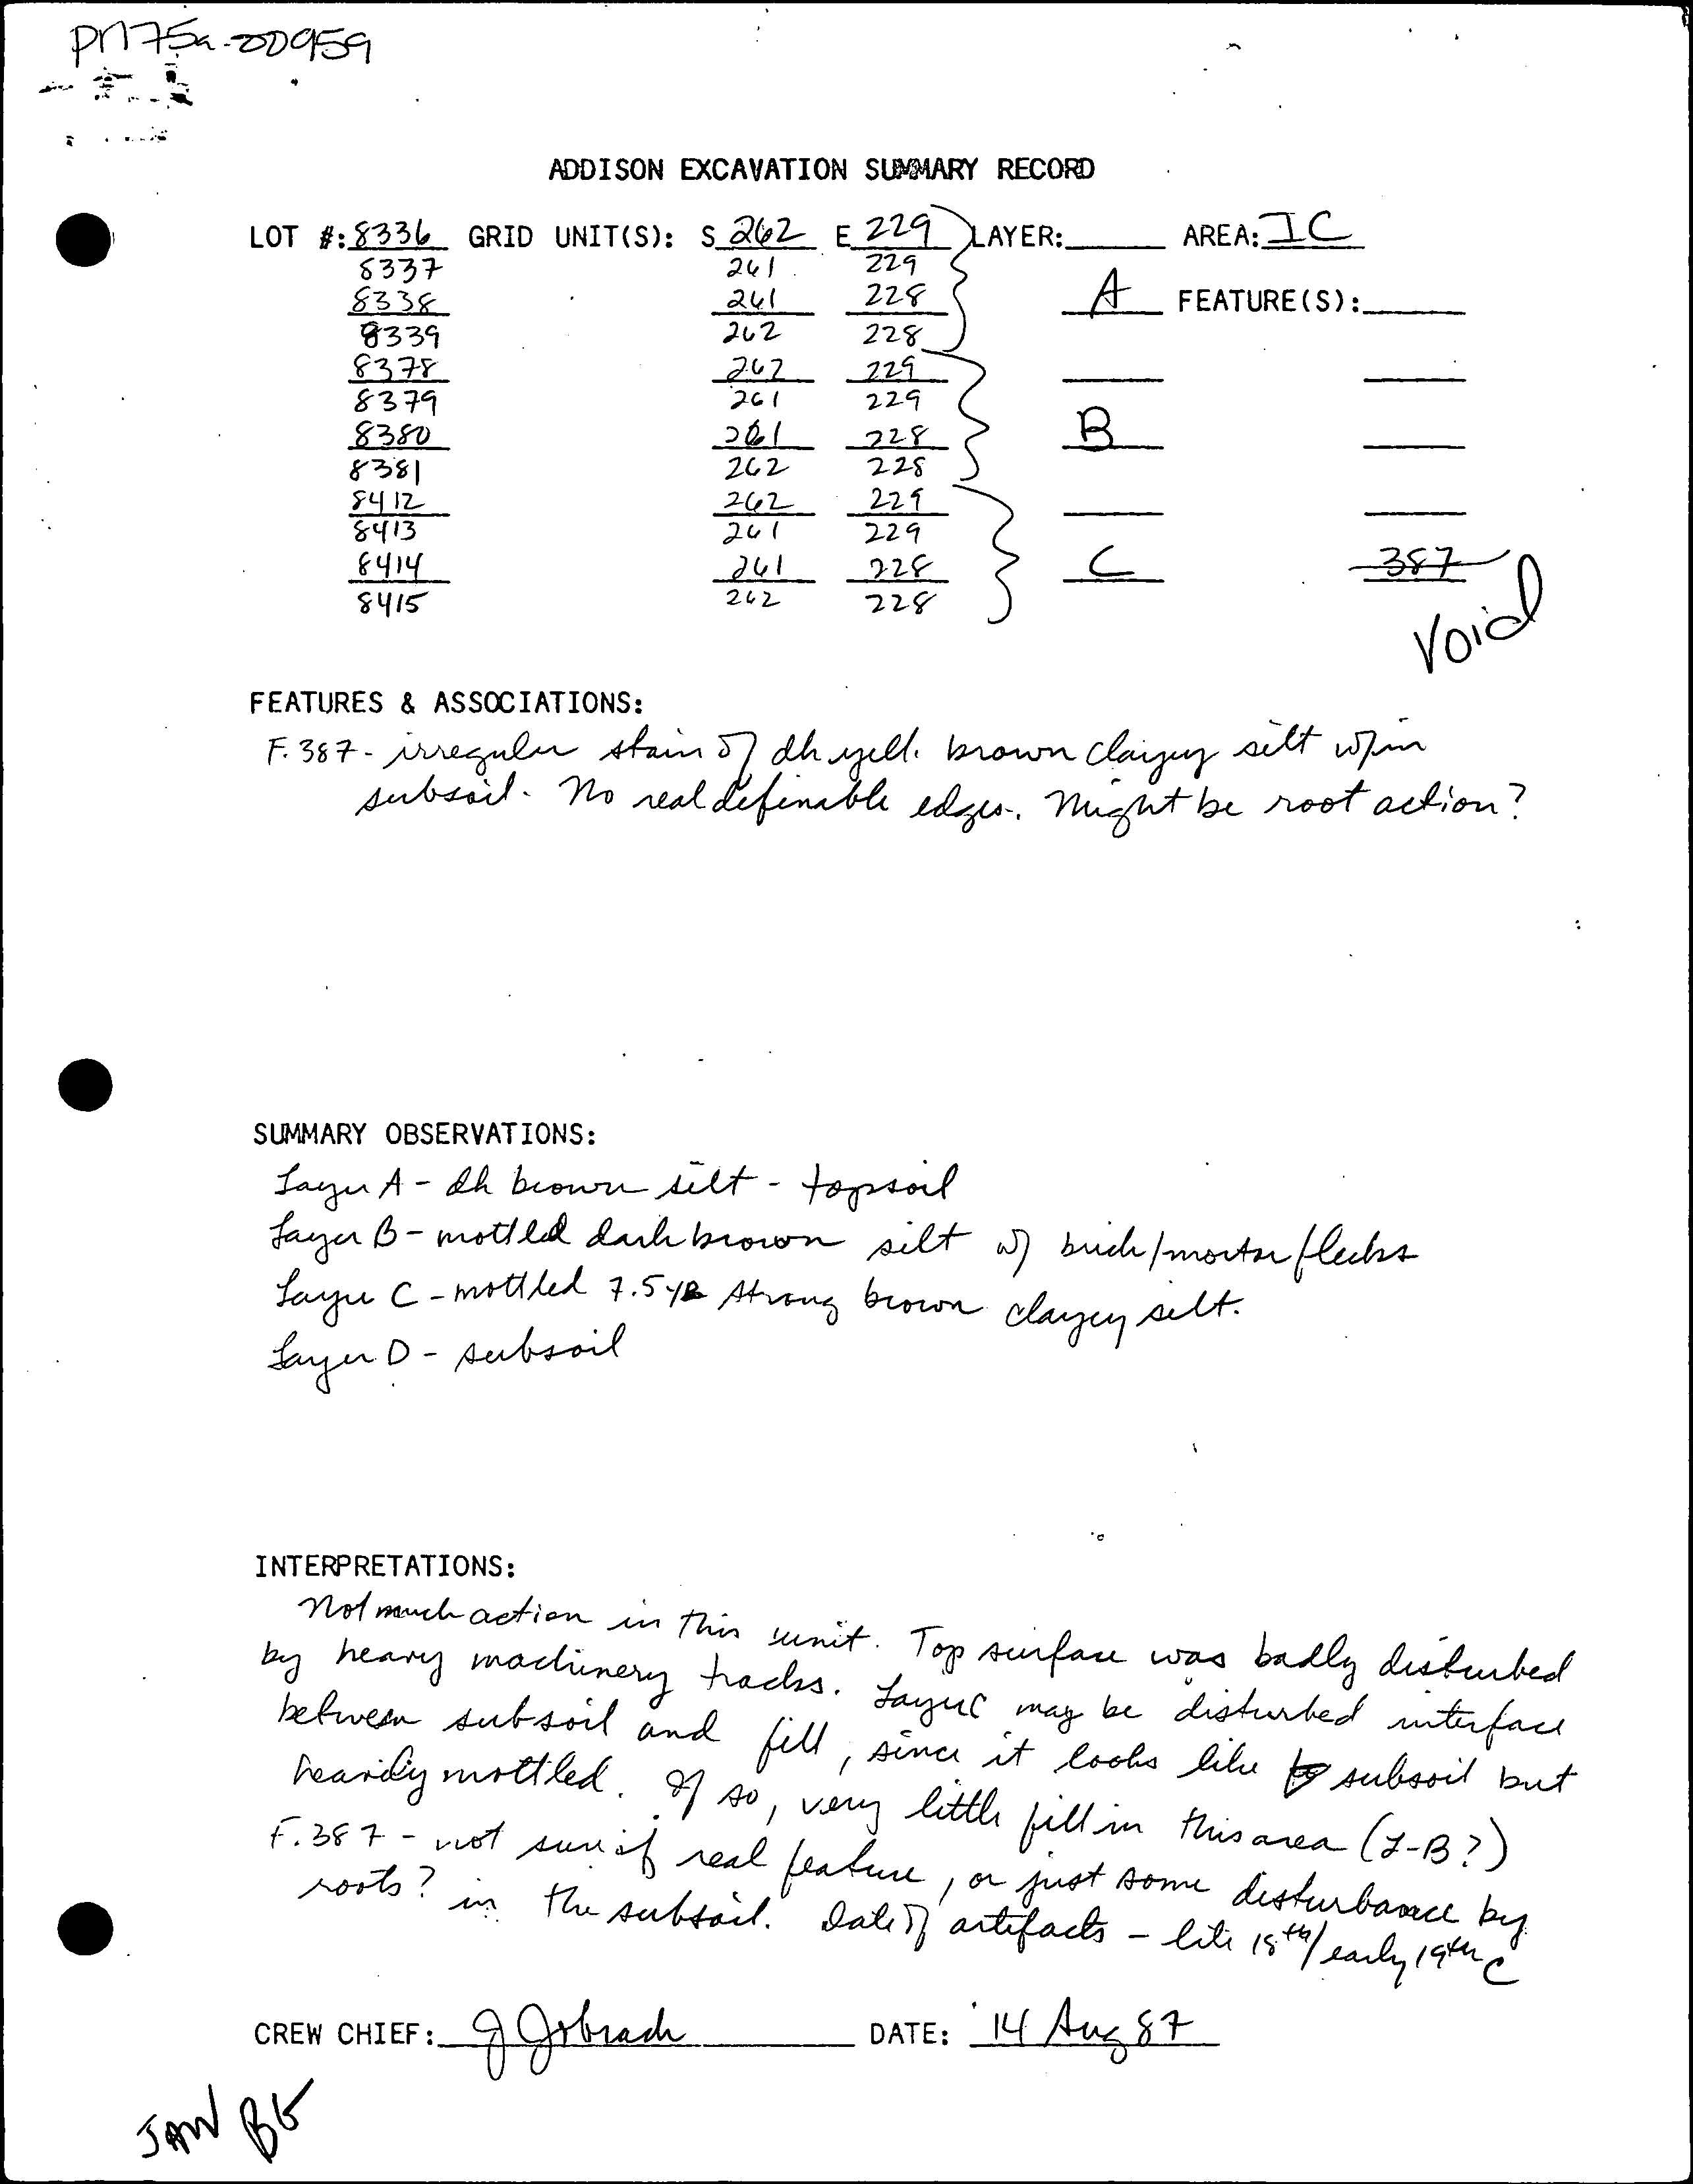 PM75a-00959
ADDISON EXCAVATION SUMMARY RECORD
LOT #: 8336 GRID UNIT(S): S 262 E 229 LAYER: AREA: IC
8337 261 229
8338 261 228 A FEATURE(S):
8339 262 228
8378 262 229
8379 261 229
8380 261 228 B
8381 262 228
8412 262 229
8413 261 229
8414 261 228 C 387
8415 262 228
Void
FEATURES & ASSOCIATIONS:
F. 387 - irregular stain of dk yell. brown clayey silt w/in
subsoil. No real definable edges. Might be root action?
SUMMARY OBSERVATIONS:
Layer A - dk brown silt - topsoil
Layer B - mottled dark brown silt w/ brick/mortar flecks
Layer C - mottled 7.5 YR strong brown clayey silt.
Layer D - subsoil
INTERPRETATIONS:
Not much action in this unit. Top surface was badly disturbed
by heavy machinery tracks. Layer C may be disturbed interface
between subsoil and fill, since it looks like subsoil but
heavily mottled. If so, very little fill in this area (L-B?)
F. 387 - not sure if real feature, or just some disturbance by
roots? in the subsoil. Date of artifacts - late 18th/early 19th C
CREW CHIEF: J DATE: 14 Aug 87
JAW BG